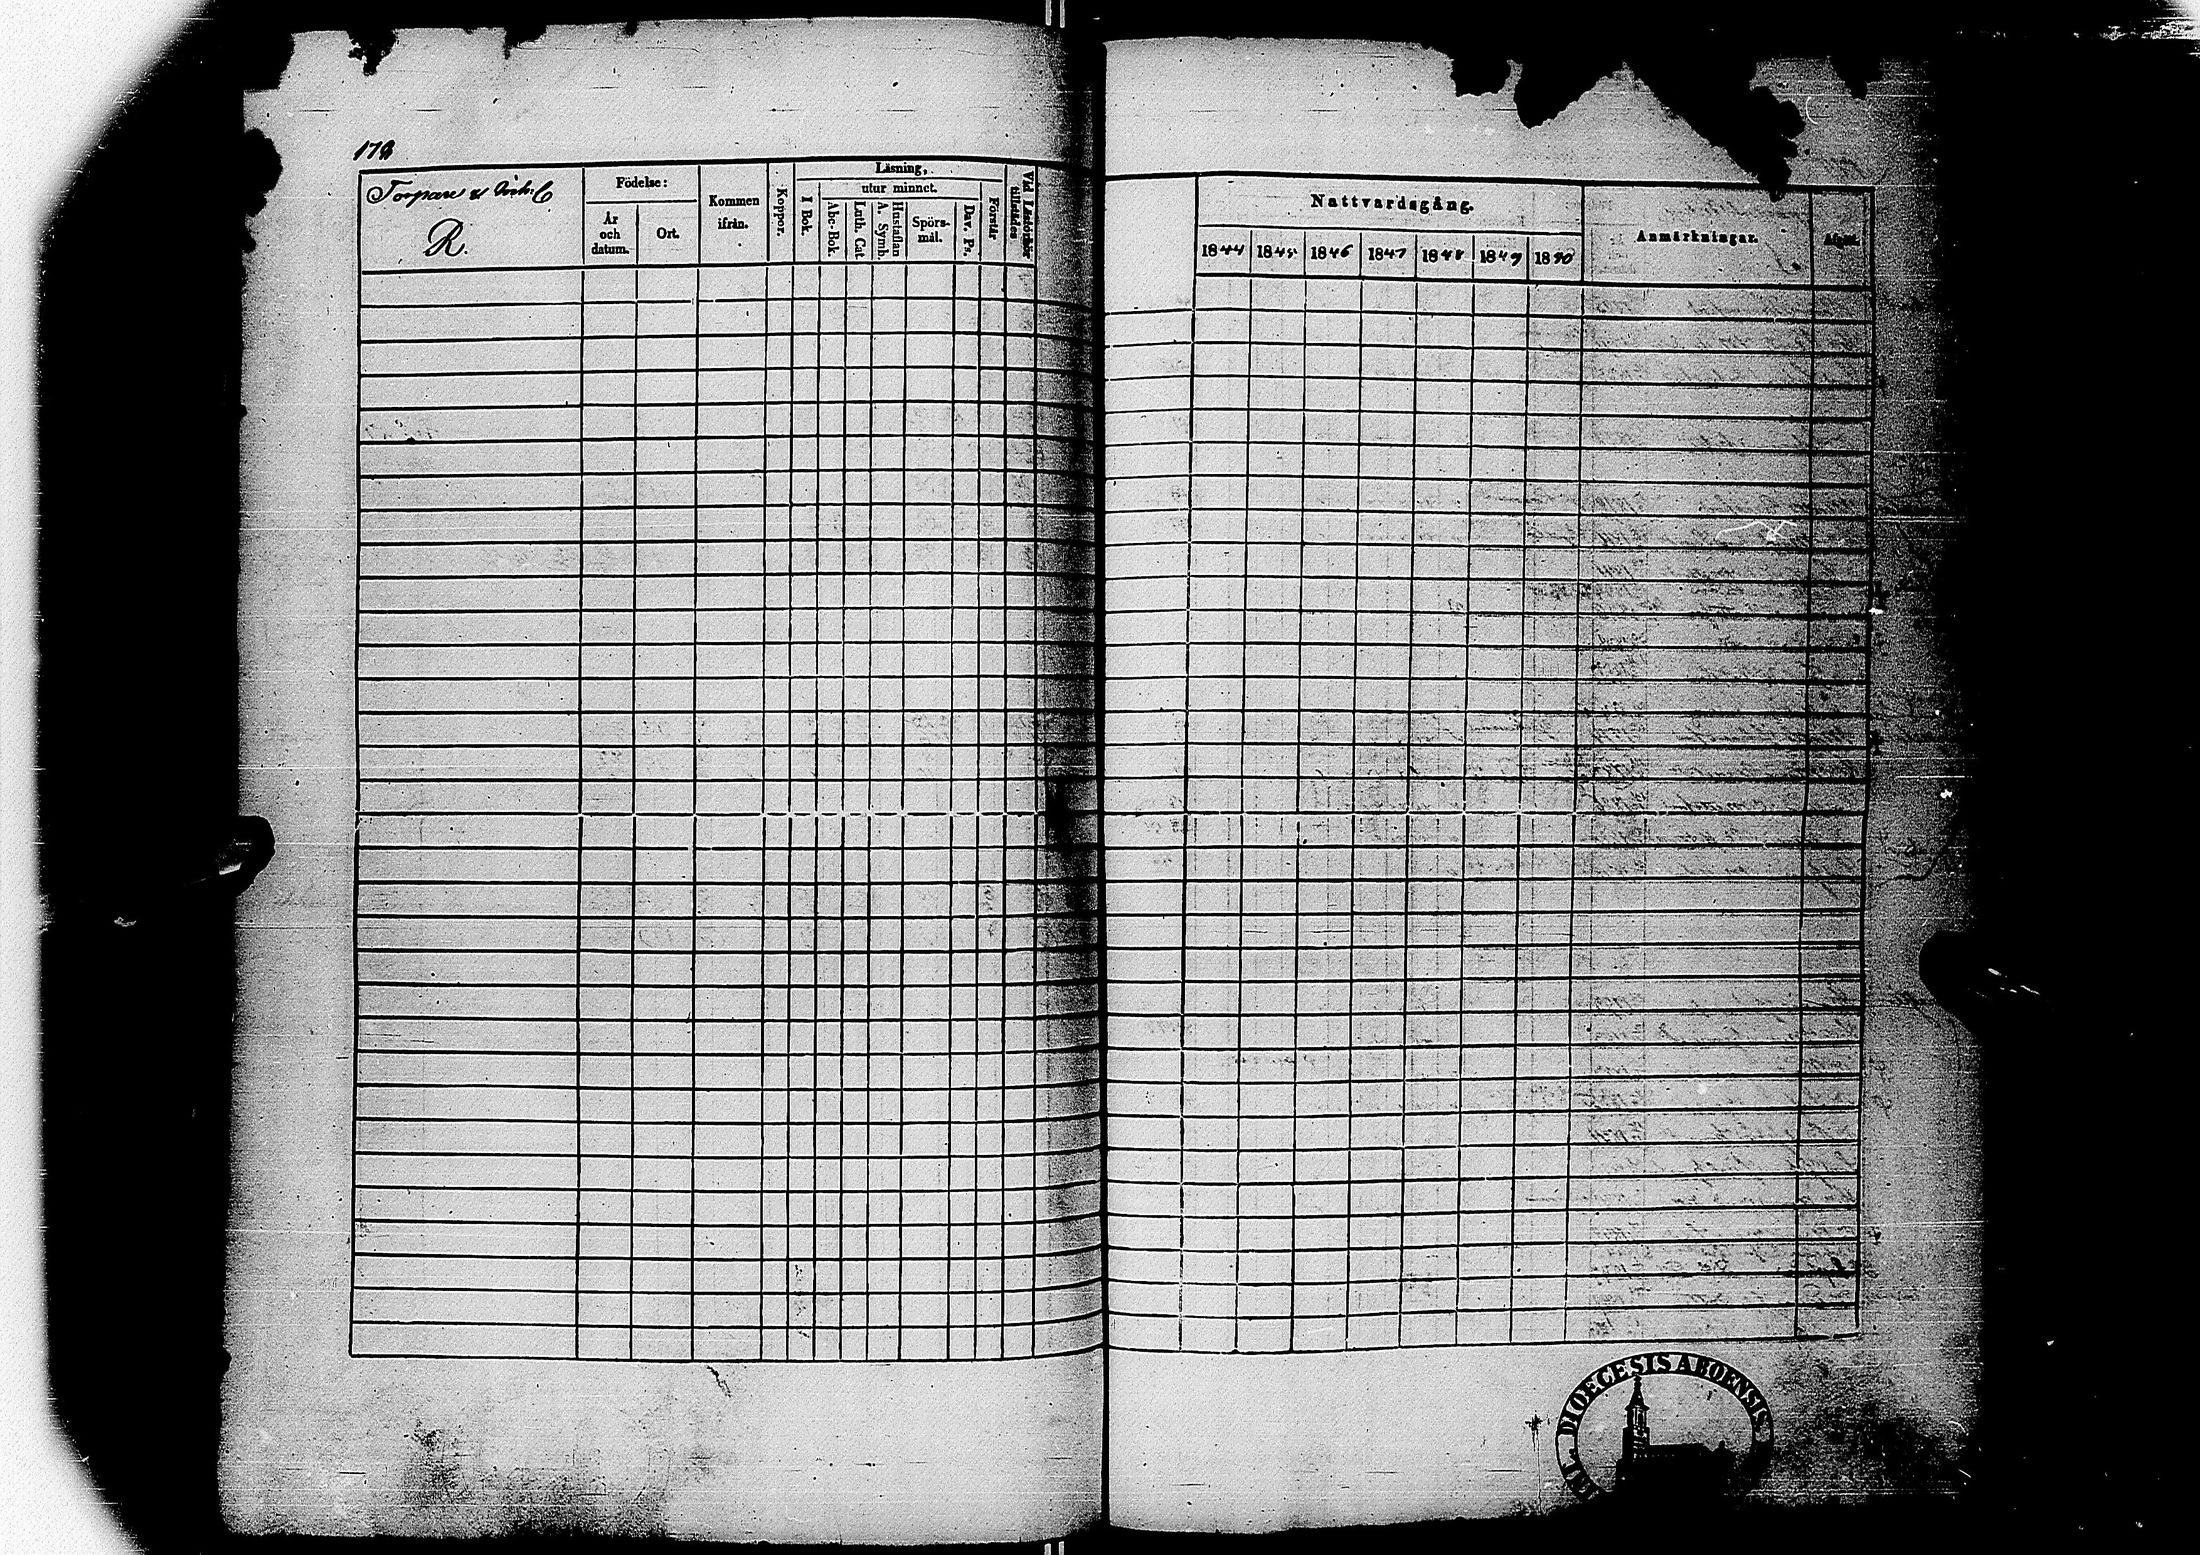 178
Torpare
R.
Födelse:
År och datum.
Ort.
Kommen ifrån.
Koppor.
Läsning,
utur minnet.
I Bok.
Abc-Bok.
Luth. Cat.
Hustaflan A. Symb.
Spörs-mål.
Dav. Ps.
Förstår
Vid Läsförhör tillstädes
Nattvardsgång.
1844 1845 1846 1847 1848 1849 1850
Anmärkningar.
DIOECESIS ABOENSIS